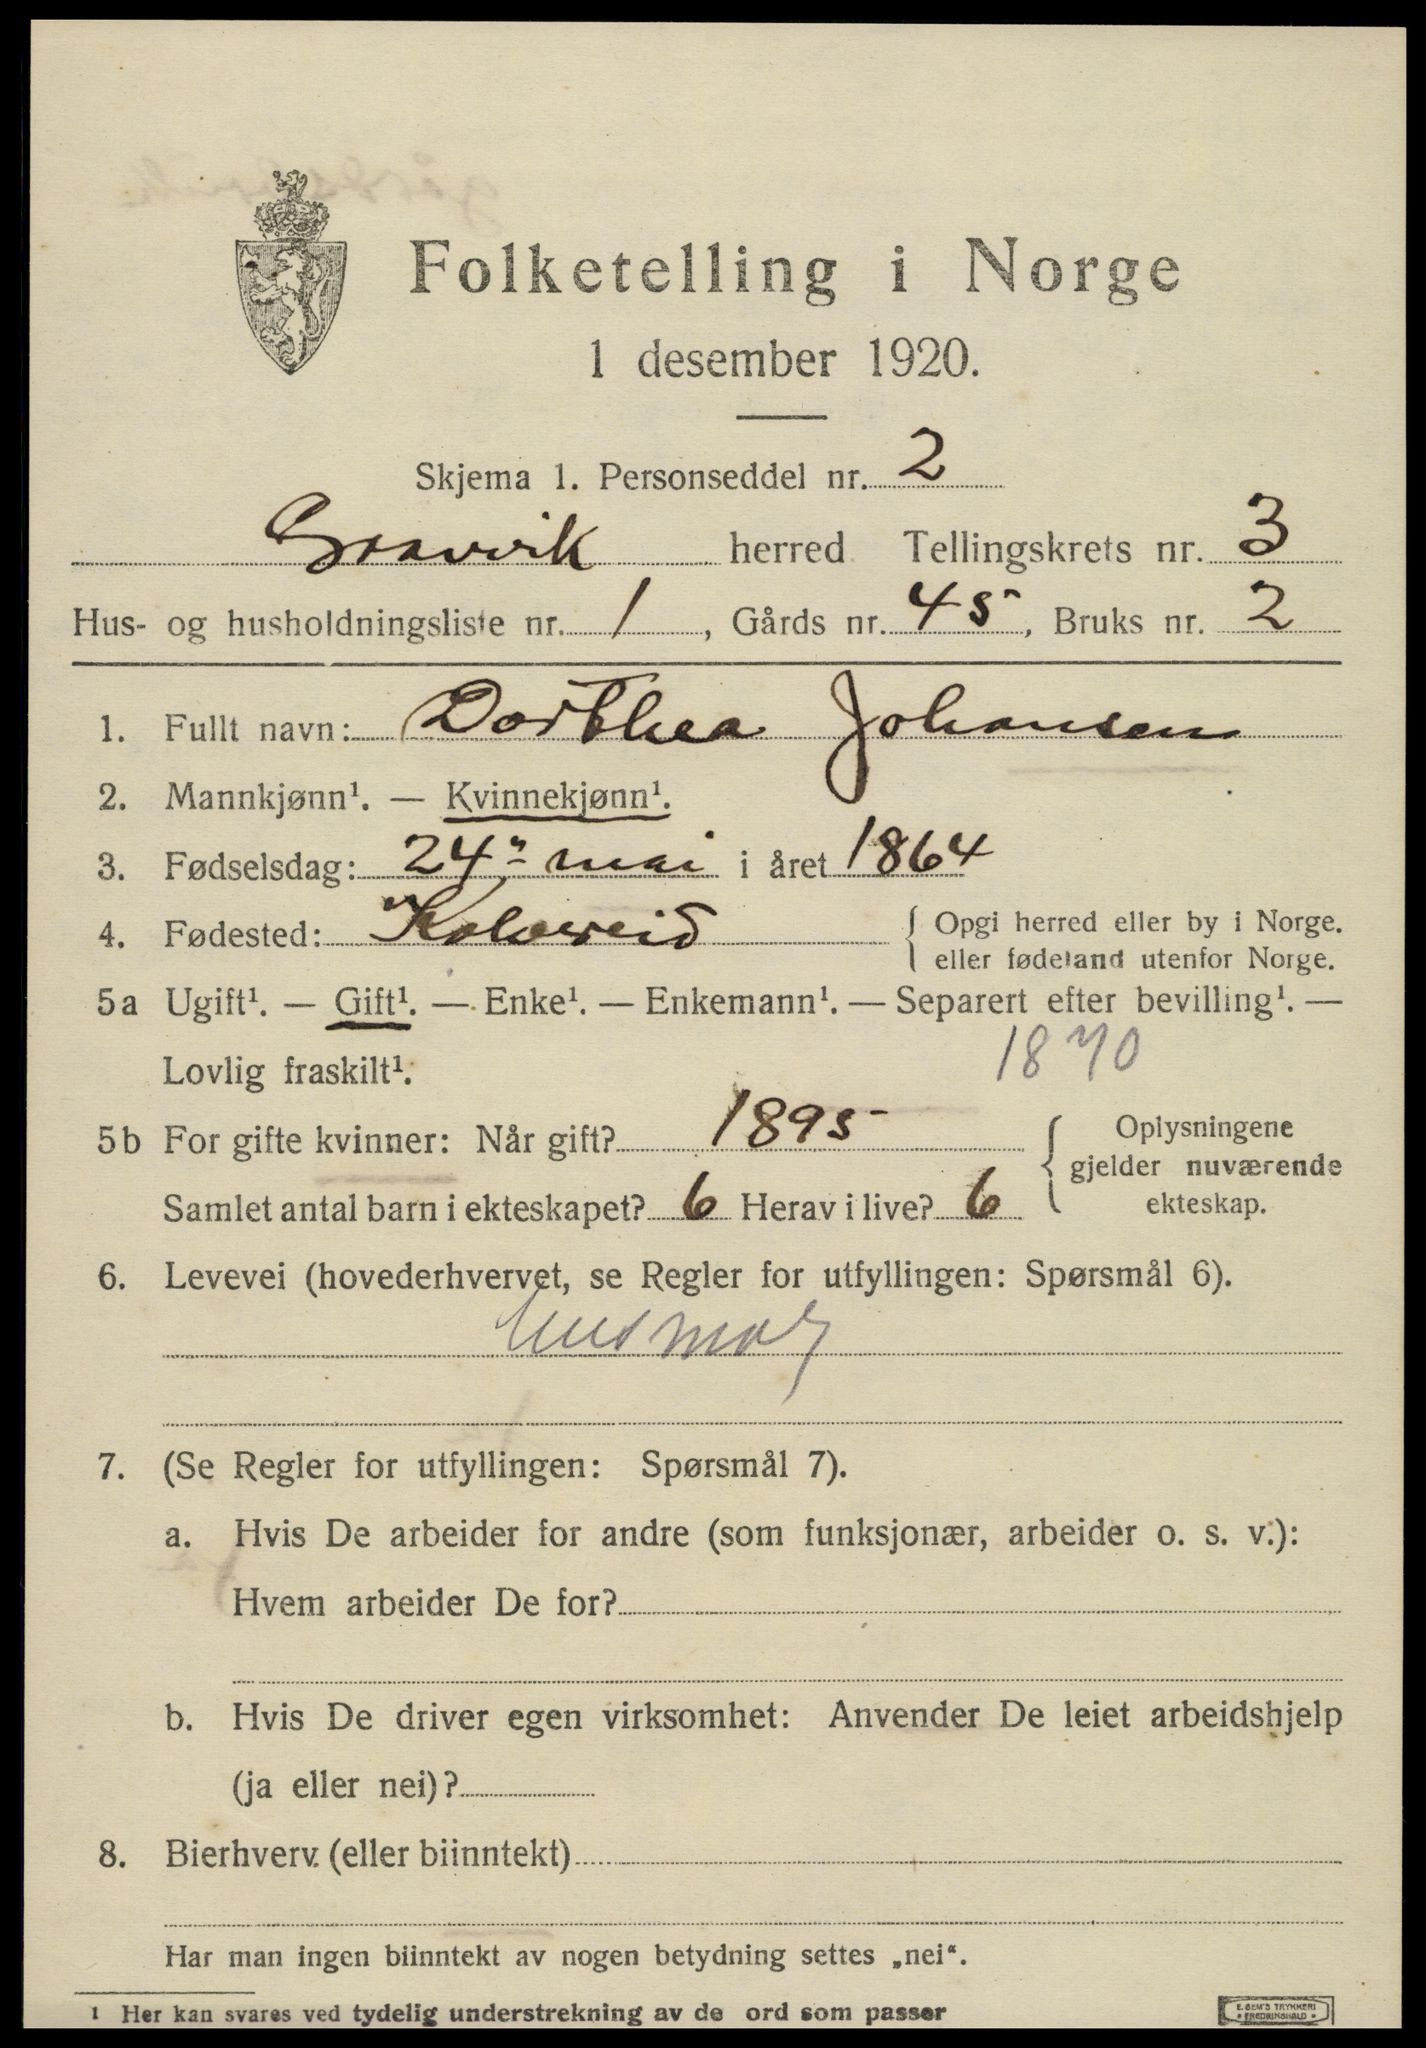 Folketelling i Norge
1 desember 1920.
Skjema 1. Personseddel nr. 2
Gravvik herred Tellingskrets nr. 3
Hus- og husholdningsliste nr. 1, Gårds nr. 45, Bruks nr. 2
1. Fullt navn: Dorthea Johansen
2. Mannkjønn¹. — Kvinnekjønn¹.
3. Fødselsdag: 24" mai i året 1864
4. Fødested: Kolvereid { Opgi herred eller by i Norge.
eller fødeland utenfor Norge.
5a Ugift¹. — Gift¹. — Enke¹. — Enkemann¹. — Separert efter bevilling¹. —
Lovlig fraskilt¹. 1870
5b For gifte kvinner: Når gift? 1895 { Oplysningene
gjelder nuværende
Samlet antal barn i ekteskapet? 6 Herav i live? 6 ekteskap.
6. Levevei (hovederhvervet, se Regler for utfyllingen: Spørsmål 6).
husmor
7. (Se Regler for utfyllingen: Spørsmål 7).
a. Hvis De arbeider for andre (som funksjonær, arbeider o. s. v.):
Hvem arbeider De for?
b. Hvis De driver egen virksomhet: Anvender De leiet arbeidshjelp
(ja eller nei)?
8. Bierhverv (eller biinntekt)
Har man ingen biinntekt av nogen betydning settes „nei“.
¹ Her kan svares ved tydelig understrekning av de ord som passer
E. SEM'S TRYKKERI
FREDRIKSHALD